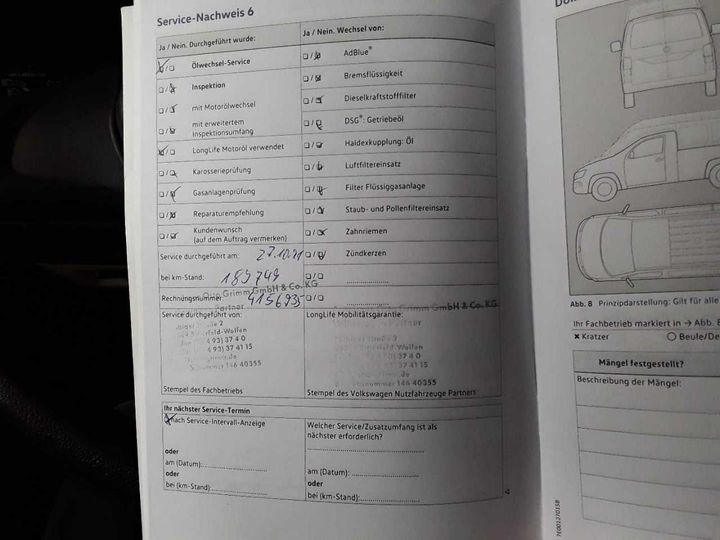 Service-Nachweis 6
Ja / Nein. Durchgeführt wurde:
Ja / Nein. Wechsel von:
Ölwechsel-Service
AdBlue®
Inspektion
Bremsflüssigkeit
mit Motorölwechsel
Dieselkraftstofffilter
mit erweitertem
Inspektionsumfang
DSG®: Getriebeöl
LongLife Motoröl verwendet
Haldexkupplung: Öl
Karosserieprüfung
Luftfiltereinsatz
Gasanlagenprüfung
Filter Flüssiggasanlage
Reparaturempfehlung
Staub- und Pollenfiltereinsatz
Kundenwunsch
(auf dem Auftrag vermerken)
Zahnriemen
Service durchgeführt am: 27.10.21
Zündkerzen
bei km-Stand: 189749
Rechnungsnummer: 4156935
Grimm GmbH & Co. KG
Partner
Grimm GmbH & Co. KG
Service durchgeführt von:
LongLife Mobilitätsgarantie:
4 93) 37 4 0
4 93) 37 41 15
146 40355
93) 37 4 0
93) 37 41 15
146 40355
Stempel des Fachbetriebs
Stempel des Volkswagen Nutzfahrzeuge Partners
Ihr nächster Service-Termin
nach Service-Intervall-Anzeige
Welcher Service/Zusatzumfang ist als
nächster erforderlich?
oder
am (Datum):
am (Datum):
oder
oder
bei (km-Stand):
bei (km-Stand):
Abb. 8 Prinzipdarstellung: Gilt für alle
Ihr Fachbetrieb markiert in → Abb. 8
× Kratzer
Beule/De
Mängel festgestellt?
Beschreibung der Mängel: